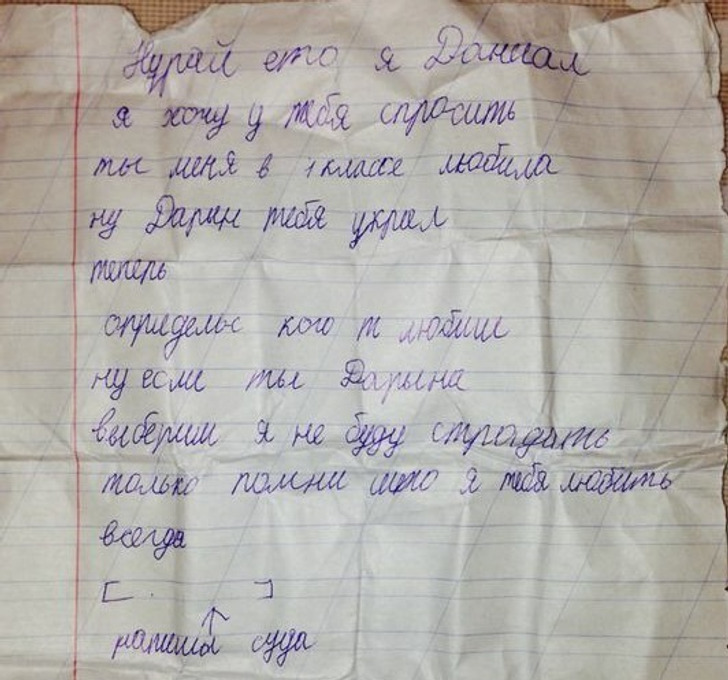 Нурай ето я Даниал
я хочу у тебя спросить
ты меня в 1 классе любила
ну Дарын тебя украл
теперь
опридельс кого т любиш
ну если ты Дарына
выбериш я не буду страдать
только помни што я тебя любить
всегда
[ . ]
↑
напишы суда